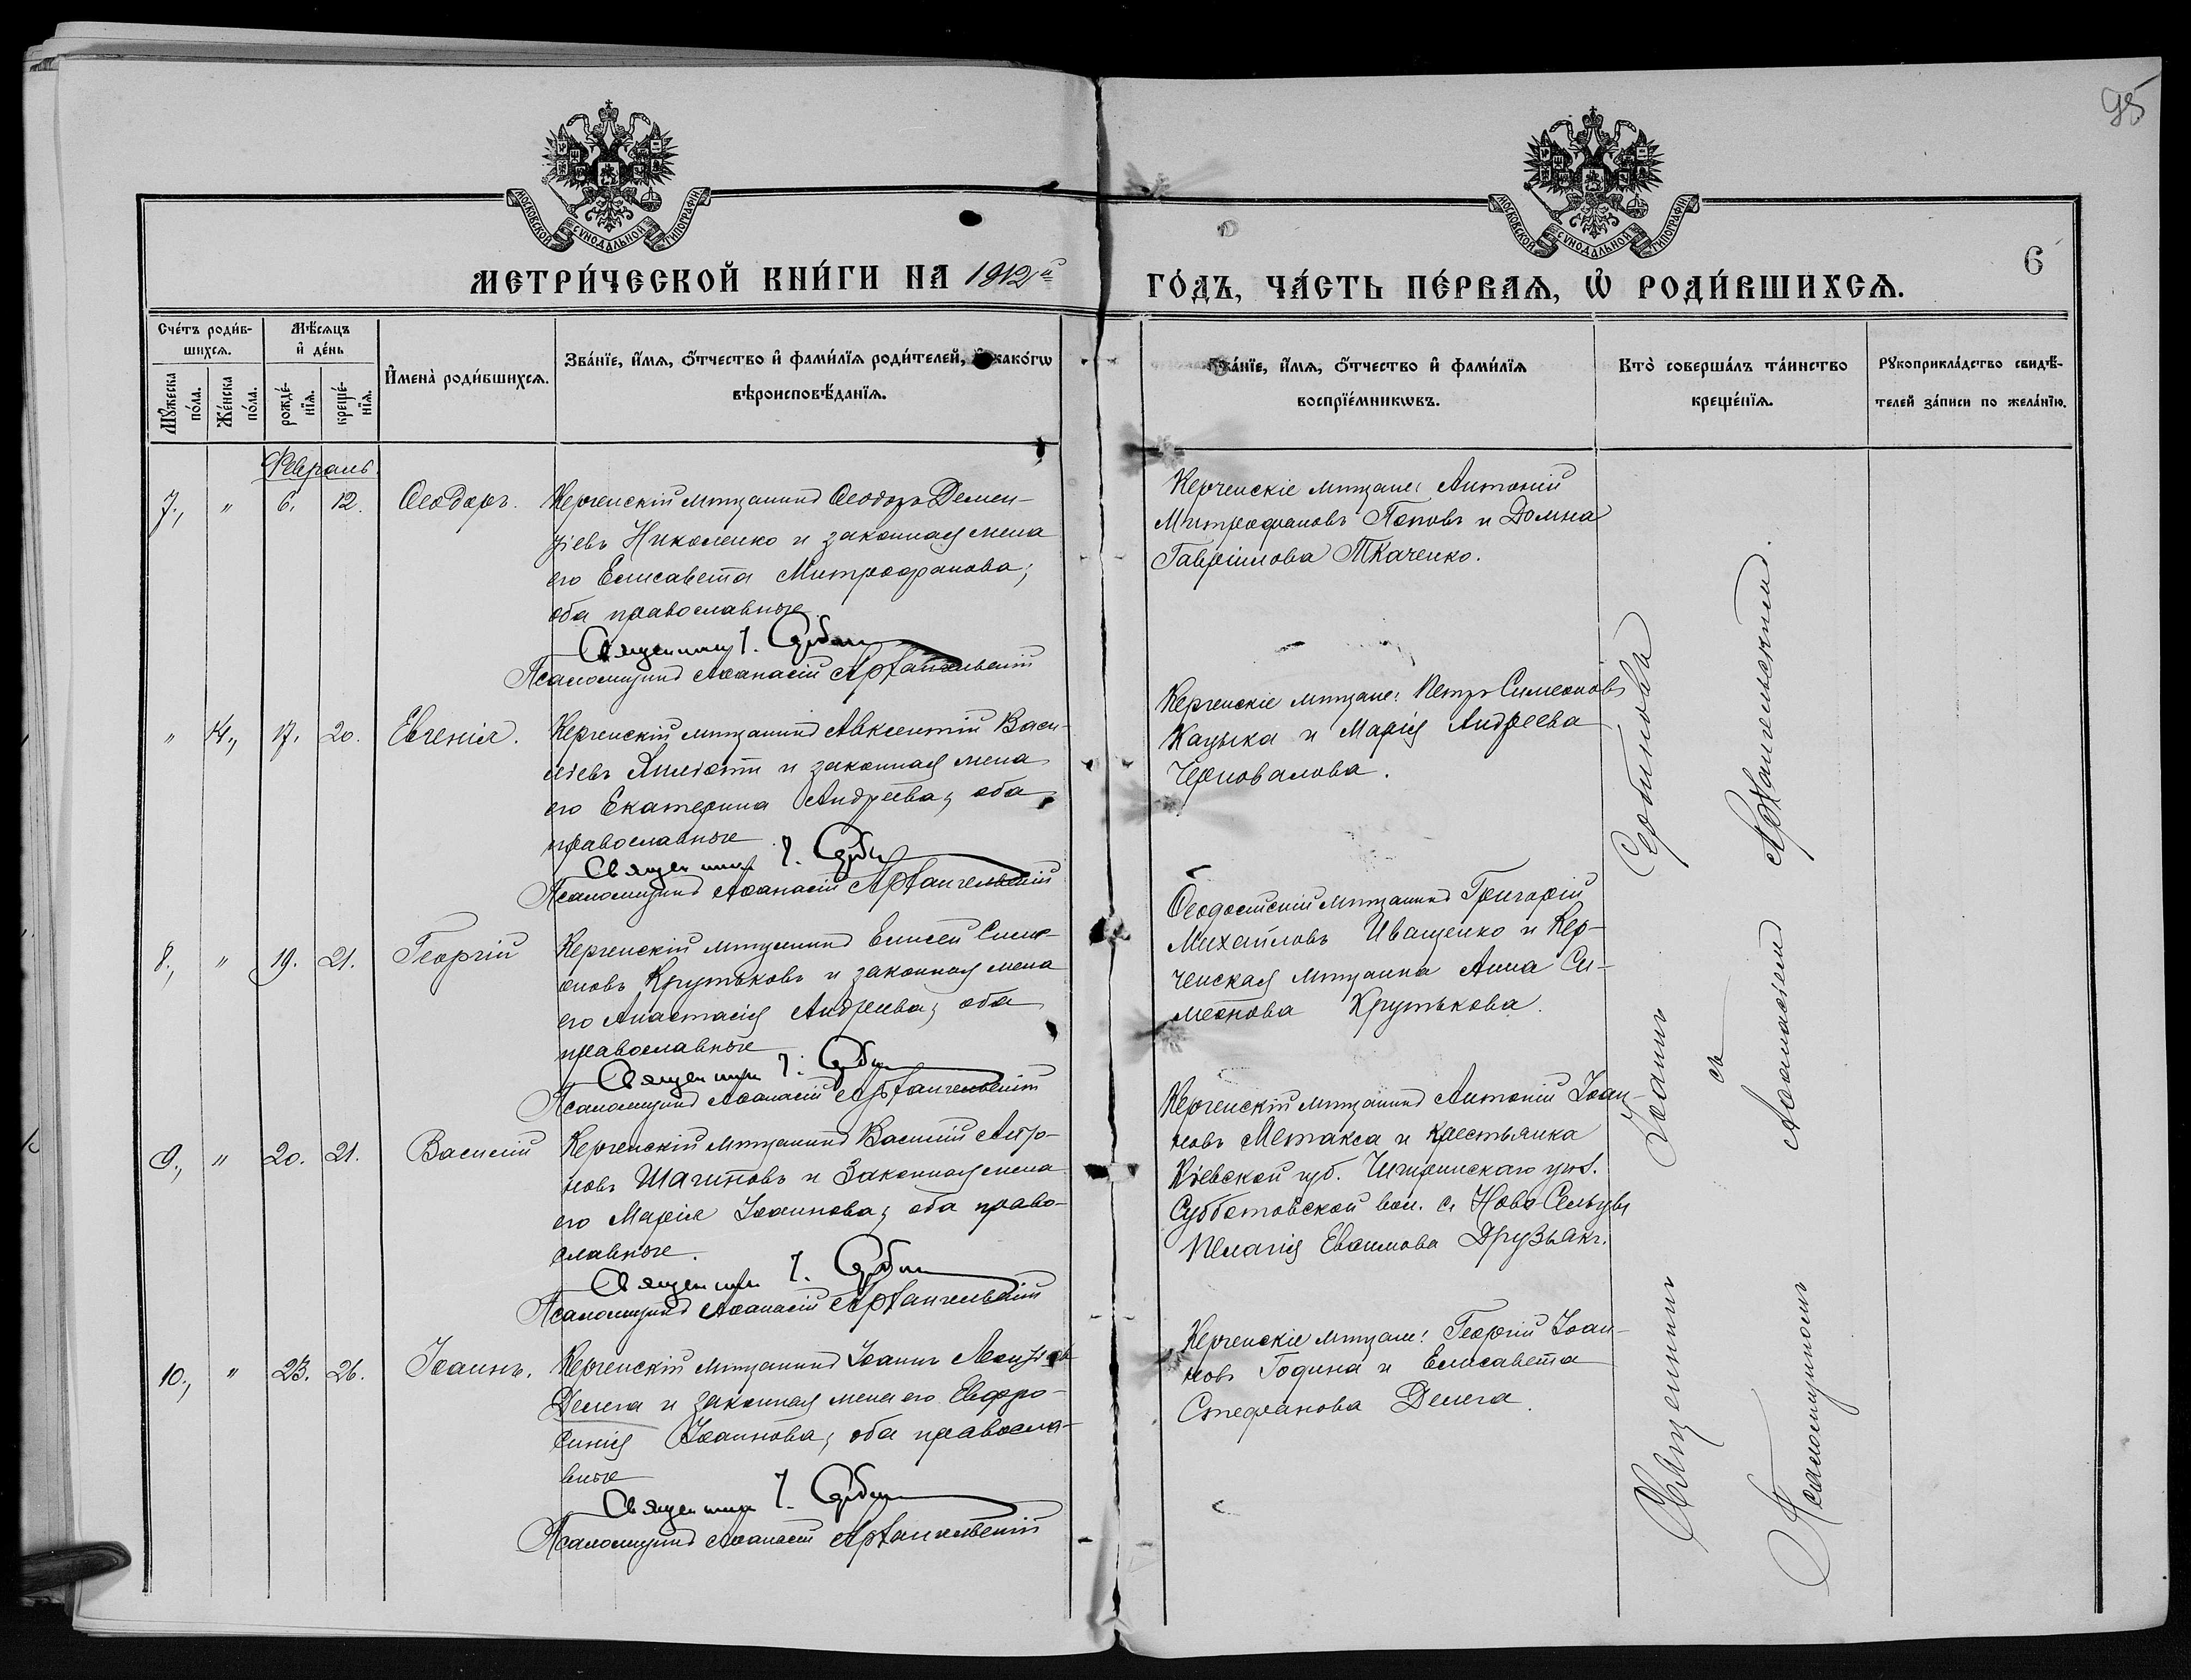 95
МОСКОВСКОЙ СѴНОДАЛЬНОЙ ТИПОГРАФІИ
МОСКОВСКОЙ СѴНОДАЛЬНОЙ ТИПОГРАФІИ
6
МЕТРИ́ЧЕСКОЙ КНИ́ГИ НА 1912й
ГО́ДЪ, ЧА́СТЬ ПЕ́РВАѦ, Ѡ҆ РОДИ́ВШИХСѦ.
Сче́тъ роди́в-
шихсѧ.
Мѣ́сѧцъ
и҆ де́нь
Мꙋ́жеска
по́ла.
Же́нска
по́ла.
рожде́-
нїѧ.
креще́-
нїѧ.
И҆мена̀ роди́вшихсѧ.
Зва́нїе, и҆́мѧ, ѻ҆́тчество и҆ фами́лїѧ роди́телей, и҆ како́гѡ
вѣроисповѣ́данїѧ.
Зва́нїе, и҆́мѧ, ѻ҆́тчество и҆ фами́лїѧ
воспрїе́мникѡвъ.
Кто̀ соверша́лъ та́инство
креще́нїѧ.
Рꙋкоприкла́дство свидѣ́-
телей за́писи по жела́нїю.
Февраль.
7., " 6. 12. Ѳеодоръ.
Керченскій мѣщанинъ Ѳеодоръ Демен-
тіевъ Николенко и законная жена
его Елисавета Митрофанова;
оба православные
Священникъ І. Сербинъ
Псаломщикъ Аѳанасій Архангельскій
Керченскіе мѣщане: Антоній
Митрофановъ Поповъ и Домна
Гавріилова Ткаченко.
" 14., 17. 20. Евгенія.
Керченскій мѣщанинъ Авксентій Васи-
ліевъ и законная жена
его Екатерина Андреева; оба
православные
Священникъ І. Сербинъ
Псаломщикъ Аѳанасій Архангельскій
Керченскіе мѣщане: Петръ Симеоновъ
Кацыка и Марія Андреева
Черновалова.
8., " 19. 21. Георгій
Керченскій мѣщанинъ Елисей Симе-
оновъ Крутьковъ и законная жена
его Анастасія Андреева; оба
православные
Священникъ І. Сербинъ
Псаломщикъ Аѳанасій Архангельскій
Ѳеодосійскій мѣщанинъ Григорій
Михайловъ Иващенко и Кер-
ченская мѣщанка Анна Си-
меонова Крутькова.
9., " 20. 21. Василій
Керченскій мѣщанинъ Василій
новъ Шагиновъ и Законная жена
его Марія Іоаннова; оба право-
славные.
Священникъ І. Сербинъ
Псаломщикъ Аѳанасій Архангельскій
Керченскій мѣщанинъ Антоній Іоан-
новъ Метакса и крестьянка
Кіевской губ. Чигиринскаго уѣз.
Субботовской вол. с. Ново-Сельцы
Пелагія Евѳимова Друзьакъ.
10., " 23. 26. Іоаннъ.
Керченскій мѣщанинъ Іоаннъ
Делега и законная жена его Евфро-
синія Іоаннова; оба правосла-
вные
Священникъ І. Сербинъ
Псаломщикъ Аѳанасій Архангельскій
Керченскіе мѣщане: Георгій Іоан-
новъ Година и Елисавета
Стефанова Делега.
Священникъ Іоаннъ Сербиновъ
съ
Псаломщикомъ Аѳанасіемъ Архангельскимъ.